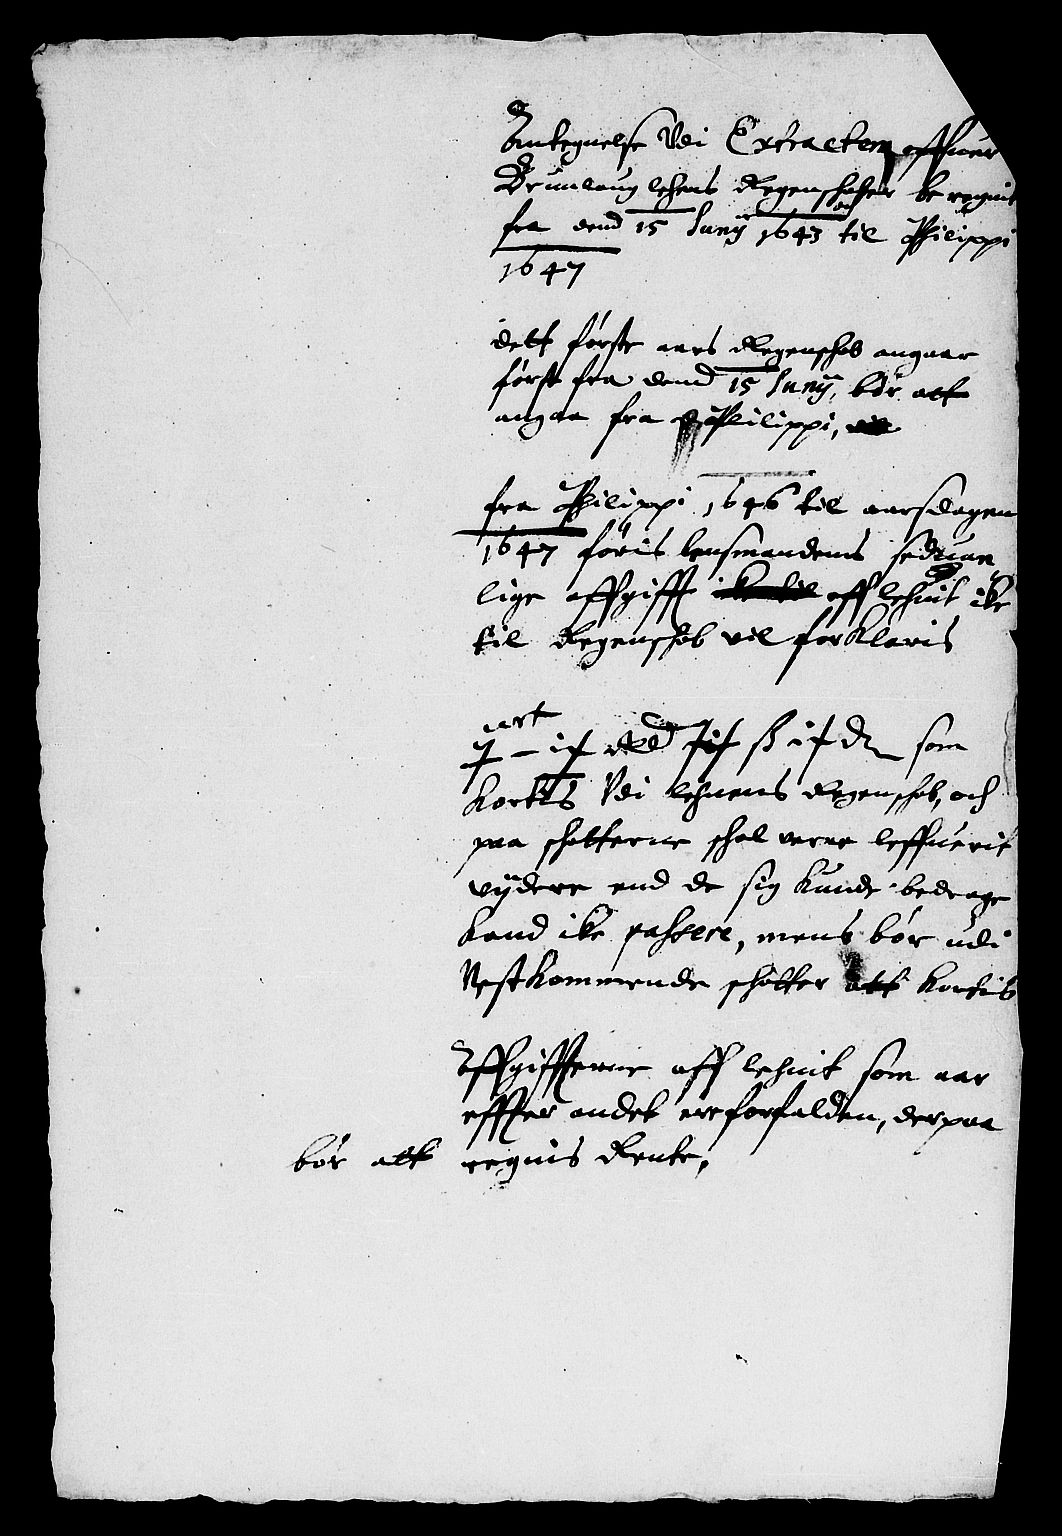 Antegnelse Vdi Extracten offuer
Brunlaug lehens Regenschaber beregnit
fra dend 15 Junÿ 1643 och til Philippi
1647
dett første aars Regenschab angaar
først fra dend 15 Junÿ, bør att
angaa fra Philippi,
fra Philippi 1646 til aarsdagen
1647 føris lensmandens seduan
lige affgifft aff lehnit ike
til Regenschab vil forklaris
art
som
Kortis Vdi lehnens Regenschab, och
paa schatterne schal verre leffuerit
vÿdere end de sig kunde bedrage
kand ike passere, mens bør udi
Nestkommende schatter att kortis
Affgiffterne aff lehnit som aar
effter andet ere forfalden, derpaa
bør att regnis Rente,